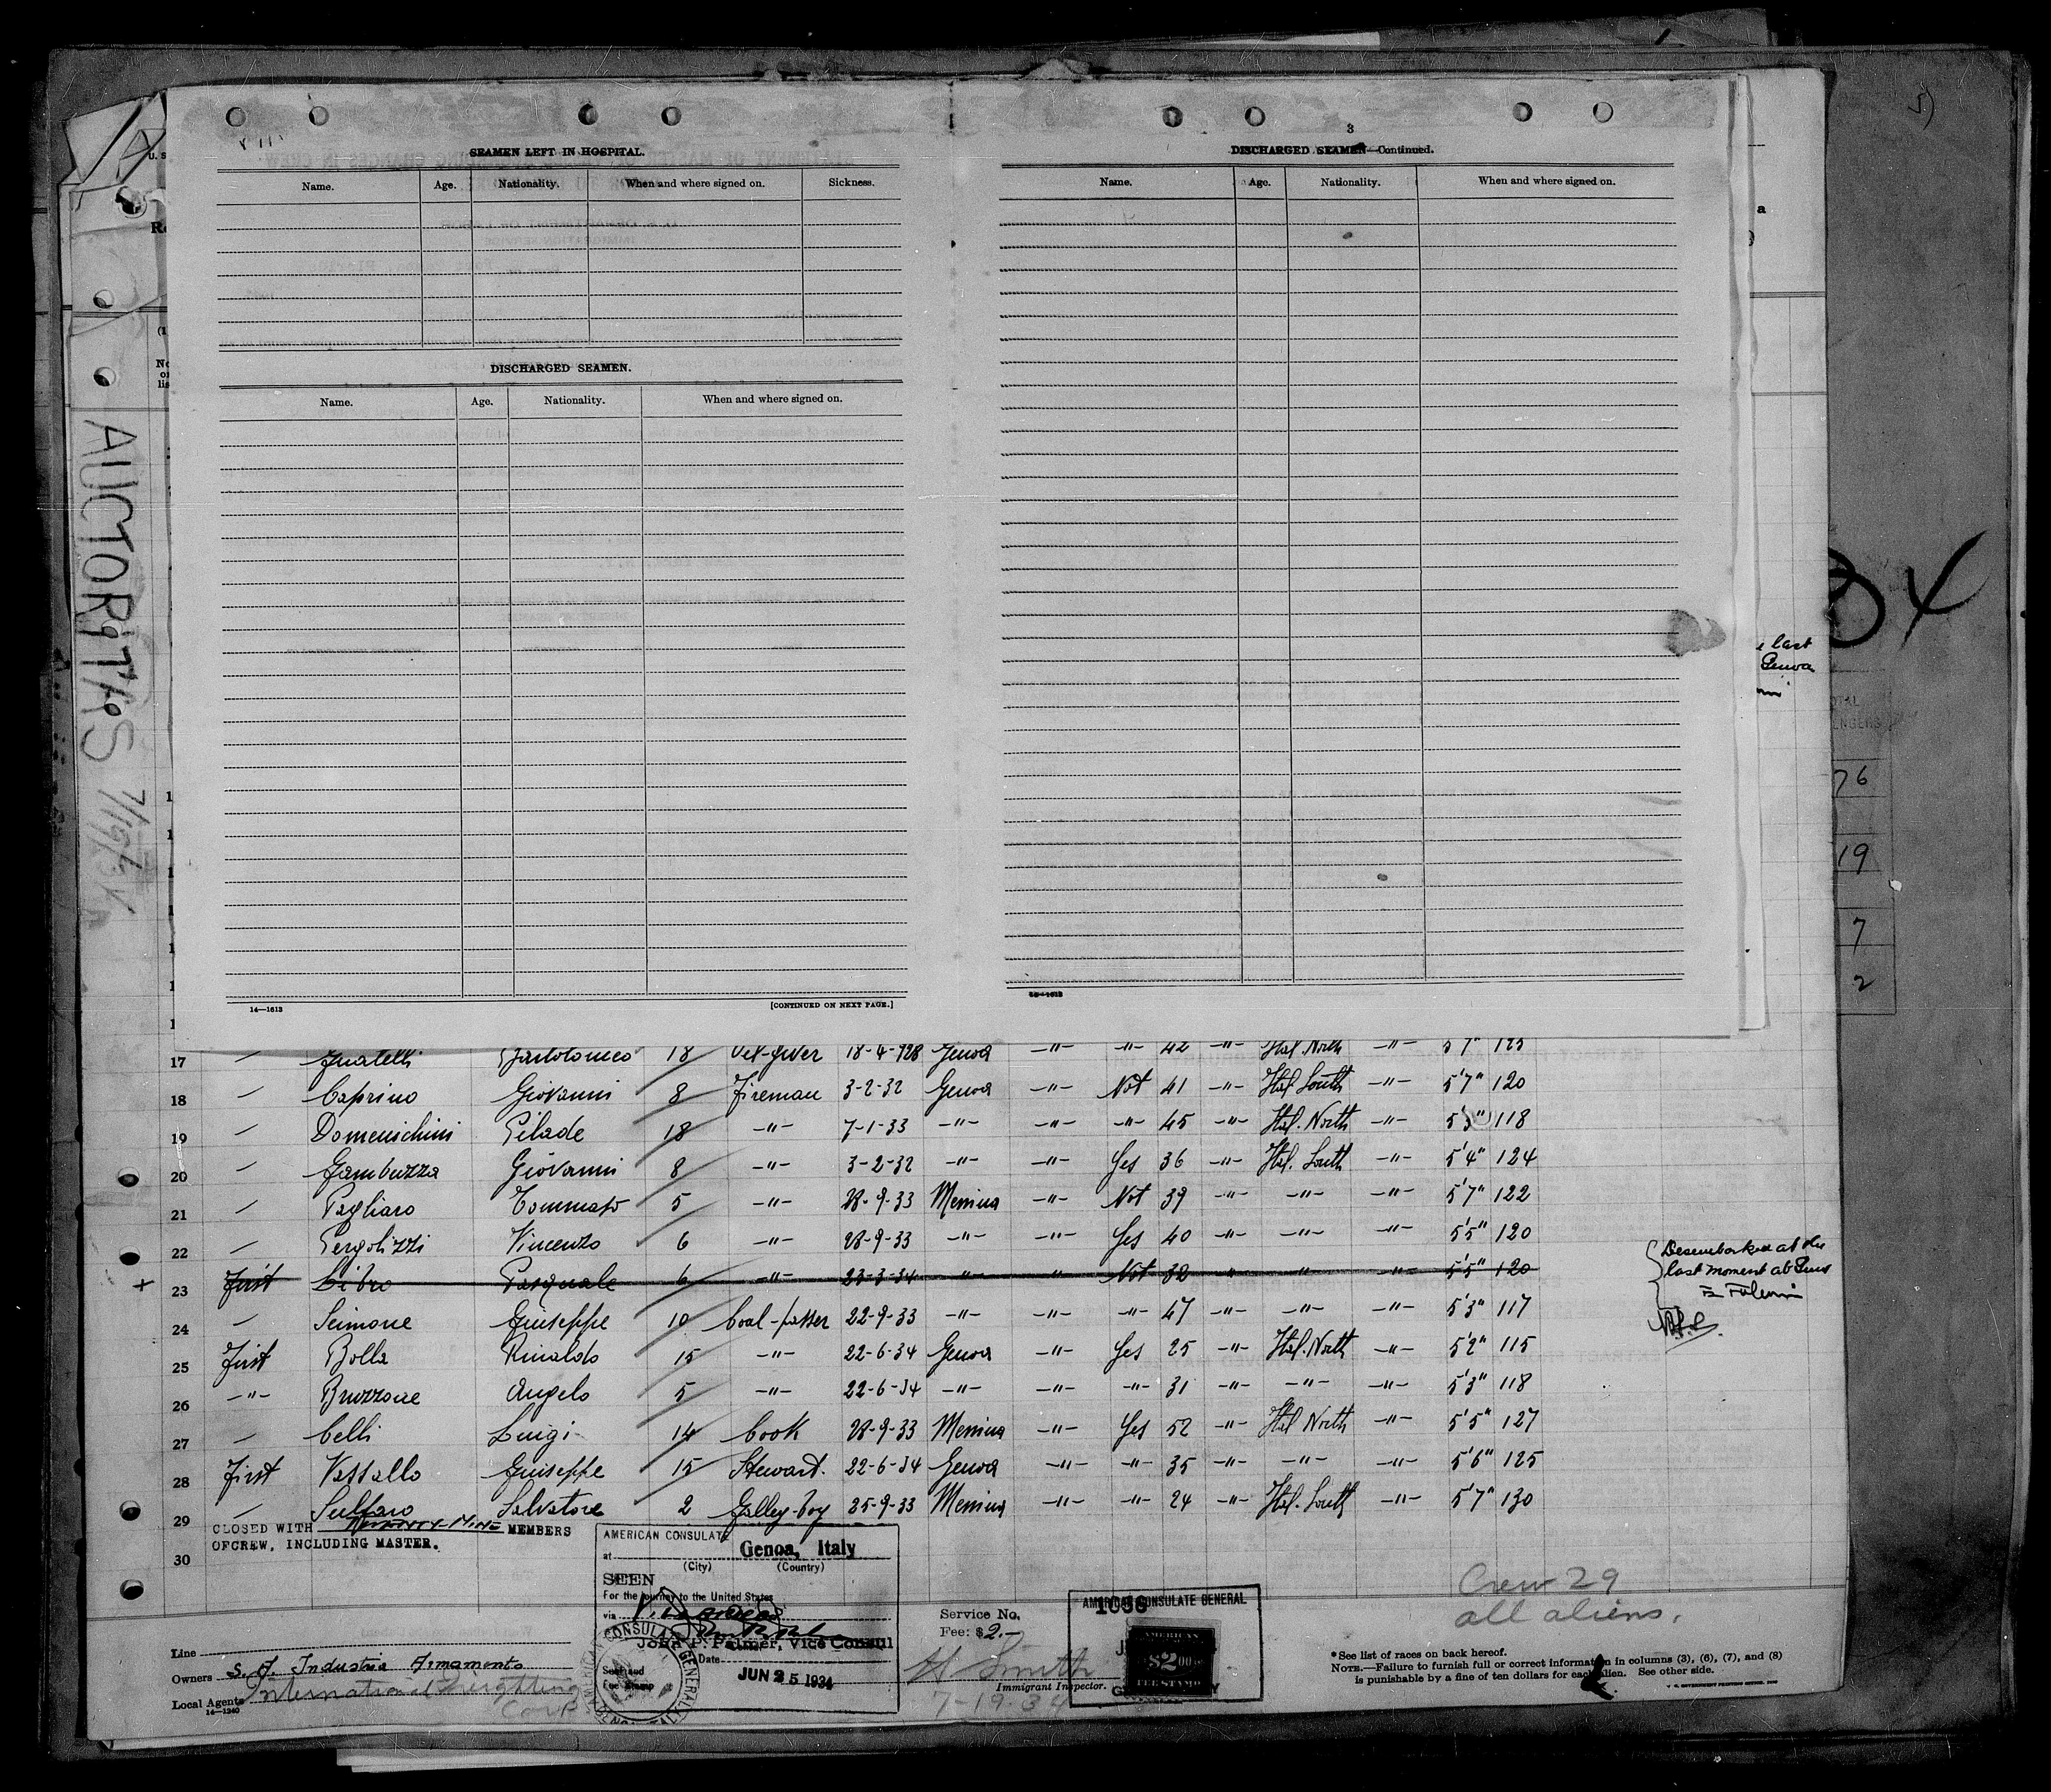 5)
3
SEAMEN LEFT IN HOSPITAL.
Name. Age. Nationality. When and where signed on. Sickness.
DISCHARGED SEAMEN—Continued.
Name. Age. Nationality. When and where signed on.
DISCHARGED SEAMEN.
Name. Age. Nationality. When and where signed on.
14—1613
[CONTINUED ON NEXT PAGE.]
AUCTORITAS
04
last
Genoa
76
19
7
2
17 Bartolomeo 18 18-4-928 Genoa -"- -"- 42 -"- Ital. North -"- 5'7" 125
18 Caprino Giovanni 8 Fireman 3-2-32 Genoa -"- Not 41 -"- Ital. South -"- 5'7" 120
19 Domenichini Pilade 18 -"- 7-1-33 -"- -"- -"- 45 -"- Ital. North -"- 118
20 Gambuzza Giovanni 8 -"- 3-2-32 -"- -"- Yes 36 -"- Ital. South -"- 5'4" 124
21 Pagliaro Tommaso 5 -"- 28-9-33 Messina -"- Not 39 -"- -"- -"- 5'7" 122
22 Pergolizzi Vincenzo 6 -"- 28-9-33 -"- -"- Yes 40 -"- -"- -"- 5'5" 120
+ 23 First Libro Pasquale 6 -"- 23-3-34 -"- -"- Not 32 -"- -"- -"- 5'5" 120
Desembarked at the
last moment at
24 Scimone Giuseppe 10 Coal-passer 22-9-33 -"- -"- -"- 47 -"- -"- -"- 5'3" 117
25 First Bolla Rinaldo 15 -"- 22-6-34 Genoa -"- Yes 25 -"- Ital. North -"- 5'2" 115
26 -"- Bruzzone Angelo 5 -"- 22-6-34 -"- -"- -"- 31 -"- -"- -"- 5'3" 118
27 Celli Luigi 14 Cook 28-9-33 Messina -"- Yes 52 -"- Ital. North -"- 5'5" 127
28 First Vassallo Giuseppe 15 Stewart. 22-6-34 Genoa -"- -"- 35 -"- -"- -"- 5'6" 125
29 Salvatore 2 Galley-boy 25-9-33 Messina -"- -"- 24 -"- Ital. South -"- 5'7" 130
CLOSED WITH Twenty-Nine MEMBERS
OFCREW, INCLUDING MASTER.
30
AMERICAN CONSULATE
at Genoa, Italy
(City) (Country)
SEEN
For the journey to the United States
via
John P. Palmer, Vice Consul
Date JUN 25 1934
Service No. 1036
Fee: $2.—
AMERICAN CONSULATE GENERAL
AMERICAN
$2.00
FEE STAMP
H Smith
Immigrant Inspector.
7-19-34
Crew 29
all aliens.
Line
Owners S. A. Industria Armamento
Local Agents International Freighting
Corp
14—1240
*See list of races on back hereof.
NOTE.—Failure to furnish full or correct information in columns (3), (6), (7), and (8)
is punishable by a fine of ten dollars for each alien. See other side.